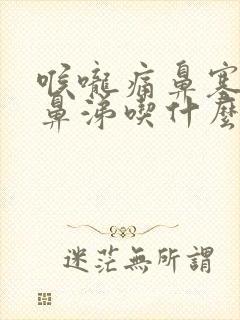 喉嚨痛鼻塞
鼻涕喫什麼
迷茫無所謂